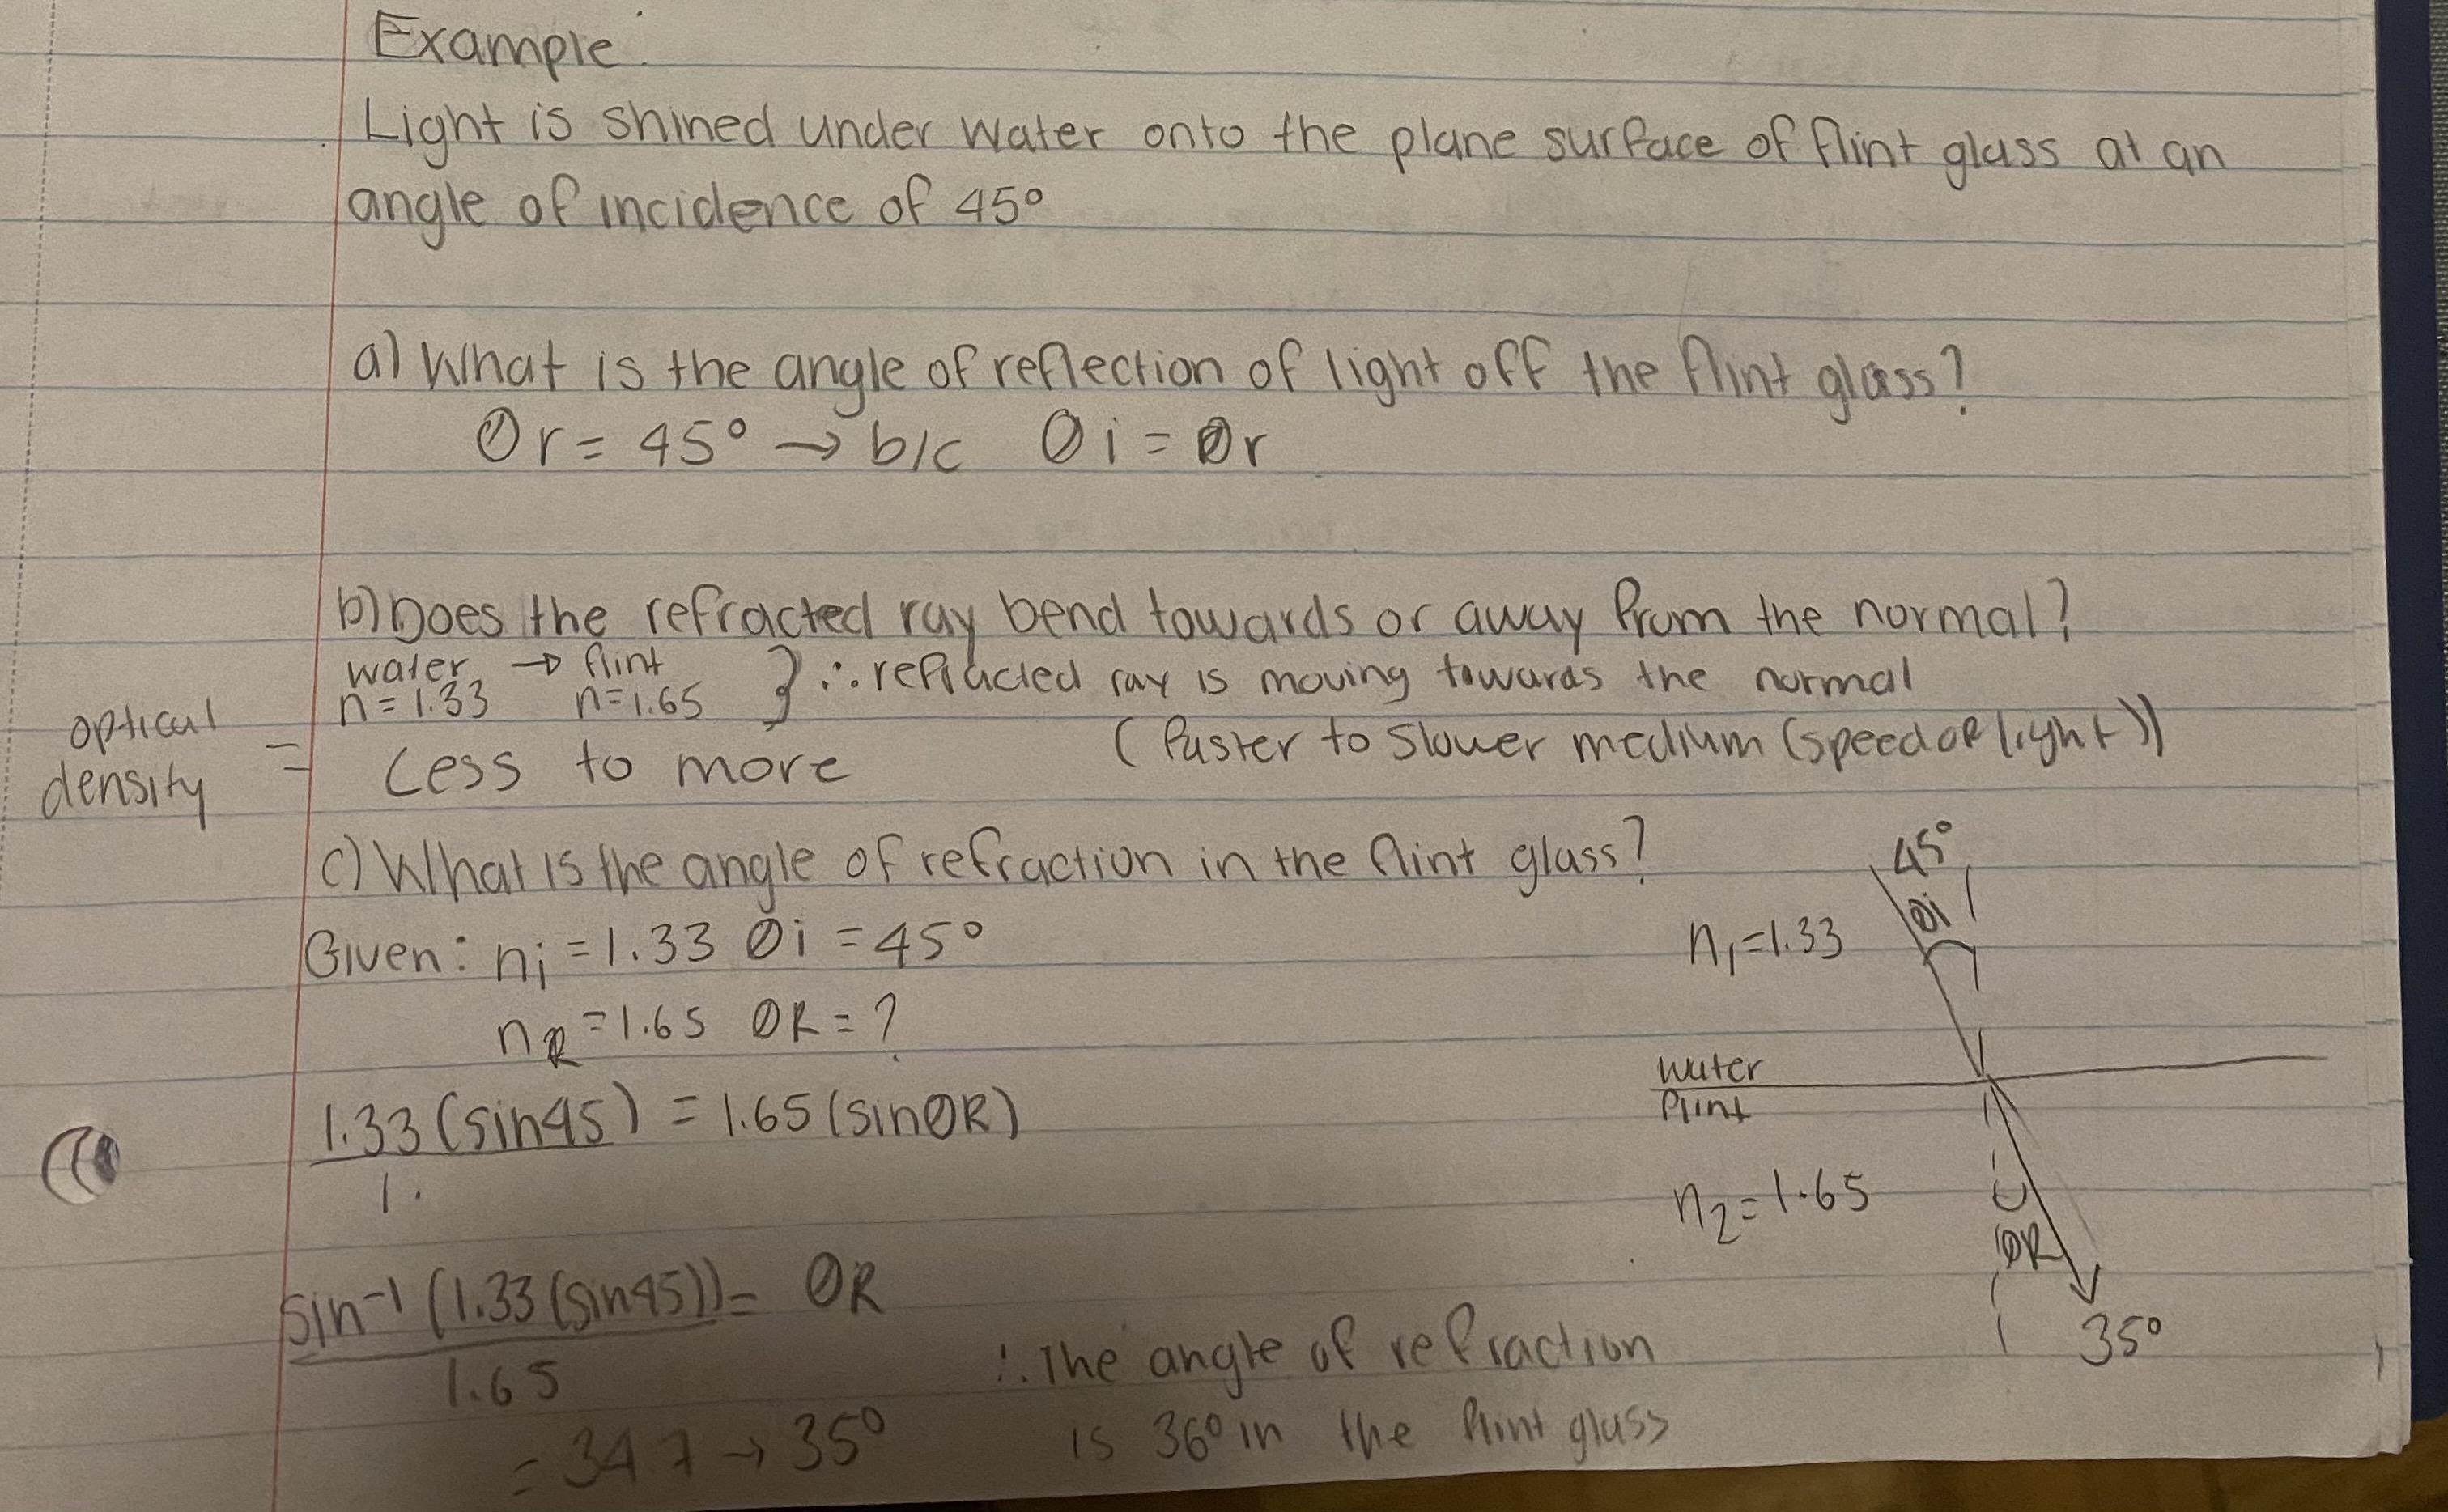 Example.
Light is shined under water onto the plane surface of flint glass at an
angle of incidence of 45°
a) What is the angle of reflection of light off the flint glass?
θr = 45° → b/c θi = θr
b) Does the refracted ray bend towards or away from the normal?
water → flint
n = 1.33 n=1.65 } ∴ refracted ray is moving towards the normal
optical density = Less to more (faster to slower medium (speed of light))
c) What is the angle of refraction in the flint glass?
Given: ni = 1.33 θi = 45°
nR = 1.65 θR = ?
1.33 (sin45) = 1.65 (sinθR)
1.
sin⁻¹ (1.33 (sin45)) = θR
1.65
= 34.7 → 35°
∴ The angle of refraction
is 36° in the flint glass
45°
θi
n₁=1.33
water
flint
n₂=1.65
θR
35°